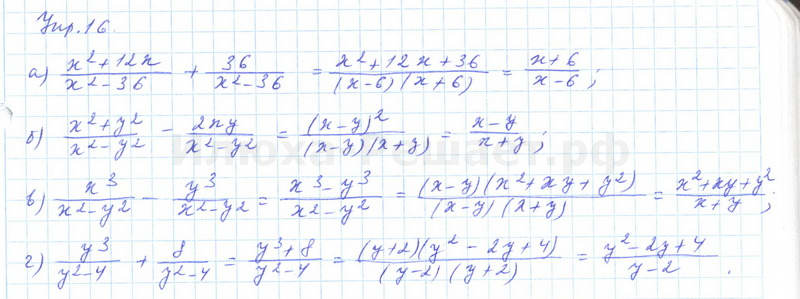 Упр. 16.
а) (x²+12x)/(x²-36) + 36/(x²-36) = (x²+12x+36)/((x-6)(x+6)) = (x+6)/(x-6);
б) (x²+y²)/(x²-y²) - 2xy/(x²-y²) = (x-y)²/((x-y)(x+y)) = (x-y)/(x+y);
в) x³/(x²-y²) - y³/(x²-y²) = (x³-y³)/(x²-y²) = (x-y)(x²+xy+y²)/((x-y)(x+y)) = (x²+xy+y²)/(x+y);
г) y³/(y²-4) + 8/(y²-4) = (y³+8)/(y²-4) = (y+2)(y²-2y+4)/((y-2)(y+2)) = (y²-2y+4)/(y-2).